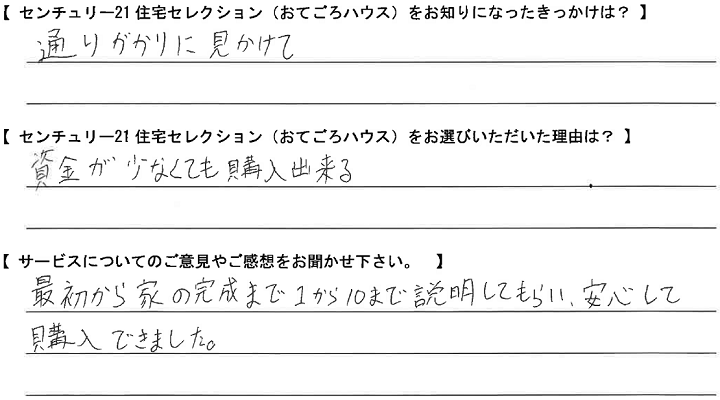 【 センチュリー21 住宅セレクション（おてごろハウス）をお知りになったきっかけは？ 】
通りがかりに見かけて
【 センチュリー21 住宅セレクション（おてごろハウス）をお選びいただいた理由は？ 】
資金が少なくても購入出来る
【 サービスについてのご意見やご感想をお聞かせ下さい。 】
最初から家の完成まで1から10まで説明してもらい、安心して
購入できました。